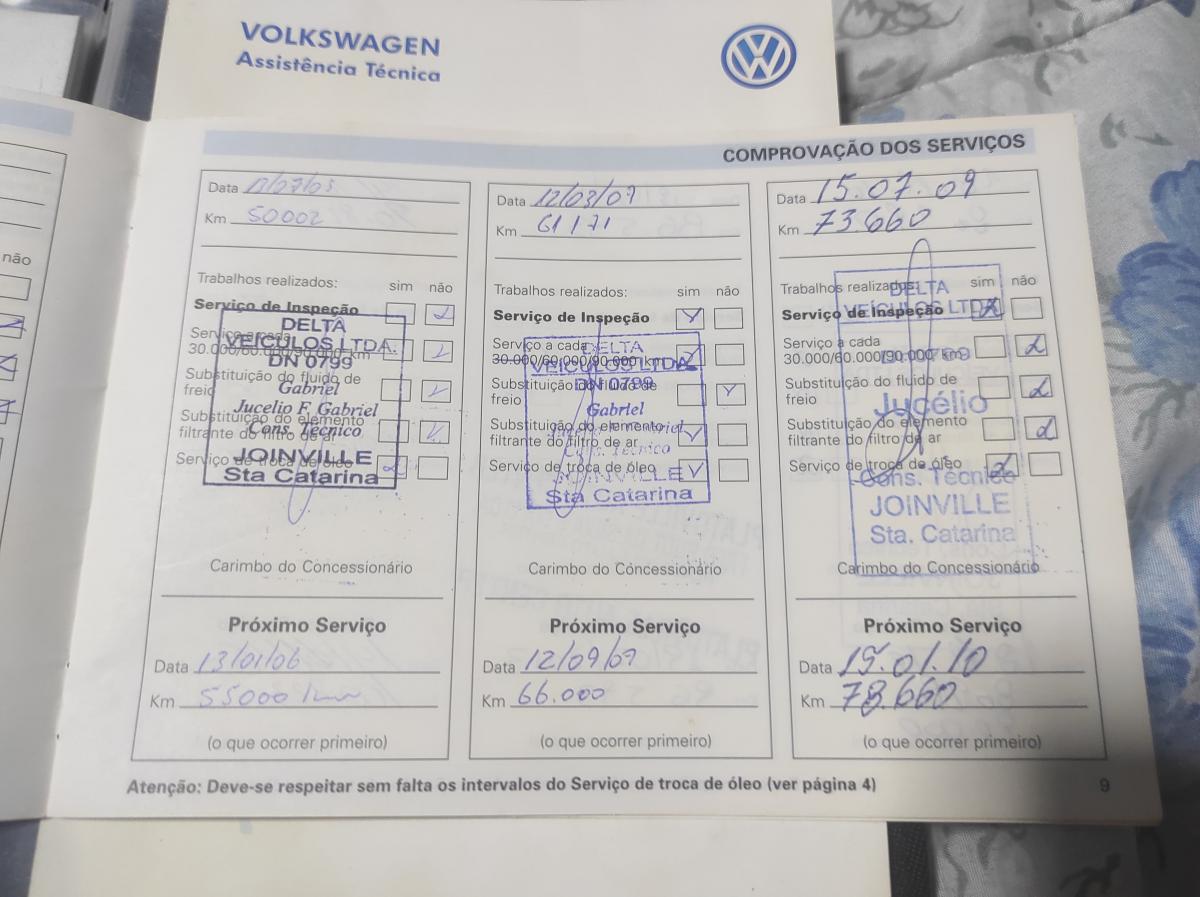 VOLKSWAGEN
Assistência Técnica
não
COMPROVAÇÃO DOS SERVIÇOS
Data
Km 50002
Trabalhos realizados: sim não
Serviço de Inspeção
Serviço a cada
30.000/60.000/90.000 km
Substituição do fluido de
freio
Substituição do elemento
filtrante do filtro de ar
Serviço de troca de óleo
DELTA
VEÍCULOS LTDA.
DN 0799
Gabriel
Jucelio F. Gabriel
Cons. Técnico
JOINVILLE
Sta Catarina
Carimbo do Concessionário
Próximo Serviço
Data 13/01/06
Km 55000 km
(o que ocorrer primeiro)
Data 12/03/09
Km 61171
Trabalhos realizados: sim não
Serviço de Inspeção
Serviço a cada
30.000/60.000/90.000 km
Substituição do fluido de
freio
Substituição do elemento
filtrante do filtro de ar
Serviço de troca de óleo
DELTA
VEÍCULOS LTDA
DN 0799
Gabriel
Cons. Técnico
JOINVILLE
Sta Catarina
Carimbo do Concessionário
Próximo Serviço
Data 12/09/09
Km 66.000
(o que ocorrer primeiro)
Data 15.07.09
Km 73.660
Trabalhos realizados: sim não
Serviço de Inspeção
Serviço a cada
30.000/60.000/90.000 km
Substituição do fluido de
freio
Substituição do elemento
filtrante do filtro de ar
Serviço de troca de óleo
DELTA
VEÍCULOS LTDA
Jucélio
Cons. Técnico
JOINVILLE
Sta. Catarina
Carimbo do Concessionário
Próximo Serviço
Data 15.01.10
Km 78.660
(o que ocorrer primeiro)
Atenção: Deve-se respeitar sem falta os intervalos do Serviço de troca de óleo (ver página 4)
9